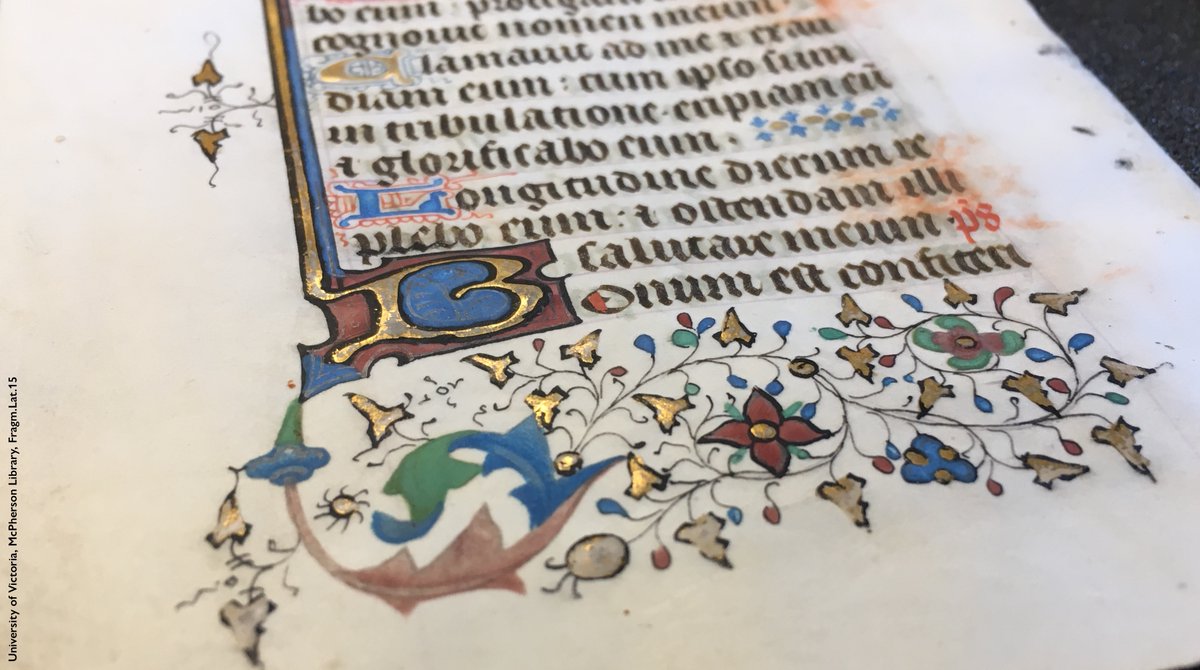 bo eum : protegam
cognouit nomen meum
Clamauit ad me ⁊ exau
diam eum : cum ipso sum
in tribulatione · eripiam eū
⁊ glorificabo eum ·
Longitudine dierum re
plebo eum : ⁊ ostendam illi
salutare meum · ps̄
Bonum est confiteri
University of Victoria, McPherson Library, Fragm.Lat.15